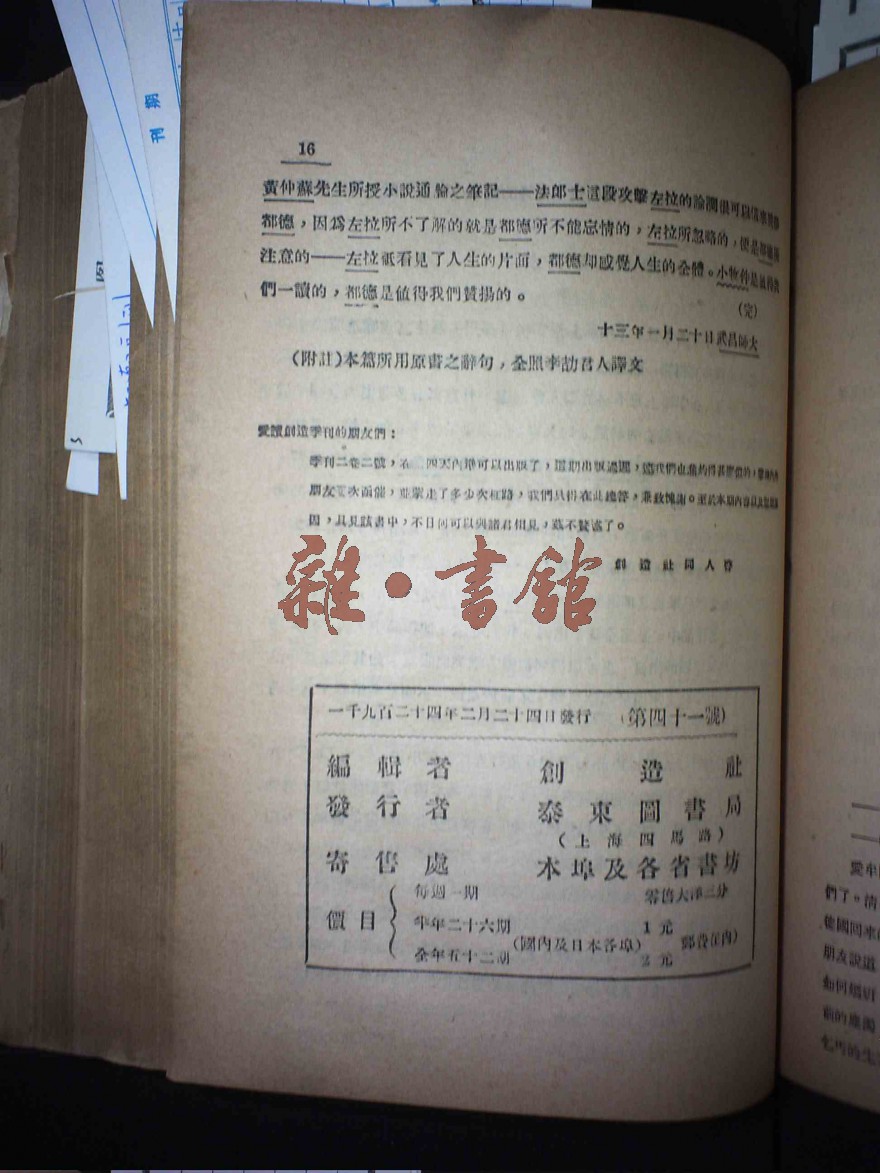 16
黃仲蘇先生所授小說通論之筆記——法郎士這段攻擊左拉的論調很可以
都德，因為左拉所不了解的就是都德所不能忘情的，左拉所忽略的，便是都德所
注意的——左拉祇看見了人生的片面，都德却感覺人生的全體。小物件是值得我
們一讀的，都德是值得我們贊揚的。
(完)
十三年一月二十日武昌師大
(附註)本篇所用原書之辭句，全照李劼君人譯文
愛讀創造季刊的朋友們：
季刊二卷二號，在 四天內準可以出版了，這期出版
朋友 次面催，並累走了多少次枉路，我們只得在此總答，兼致愧謝。至於本期內容以及
因，具見該書中，不日何可以與諸君相見，慕不贅述了。
創造社同人啓
雜·書館
一千九百二十四年二月二十四日發行 (第四十一號)
編輯者 創造社
發行者 泰東圖書局
(上海四馬路)
寄售處 本埠及各省書坊
價目
每週一期 零售大洋三分
半年二十六期 1元
(國內及日本各埠) 郵費在內)
全年五十二期 2元
刊 期
愛牟
們了。清
德國回來
朋友說道
如何
前的
乞丐的生